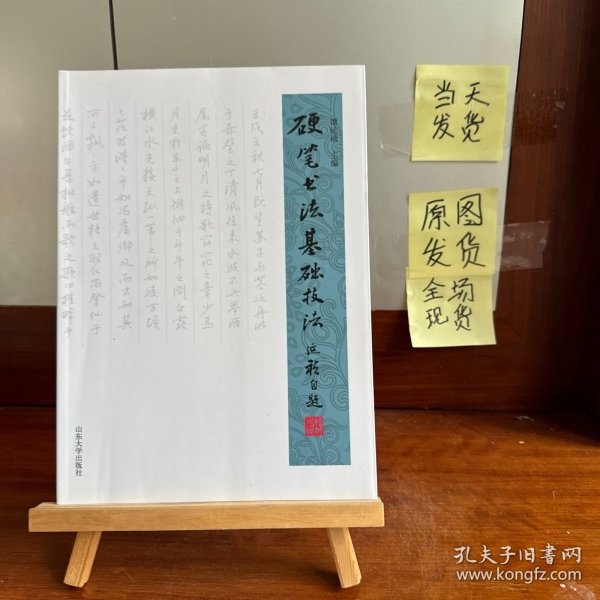 硬笔书法基础技法
自题
主编
壬戌之秋七月既望苏子与客泛舟游
于赤壁之下清风徐来水波不兴举酒
属客诵明月之诗歌窈窕之章少焉
月出于东山之上徘徊于斗牛之间白露
横江水光接天纵一苇之所如凌万顷
之茫然浩浩乎如冯虚御风而不知其
所止飘飘乎如遗世独立羽化而登仙于
是饮酒乐甚扣舷而歌之歌曰桂棹兮
山东大学出版社
当天
发货
原图
发货
全场
现货
孔夫子旧书网
www.kongfz.com